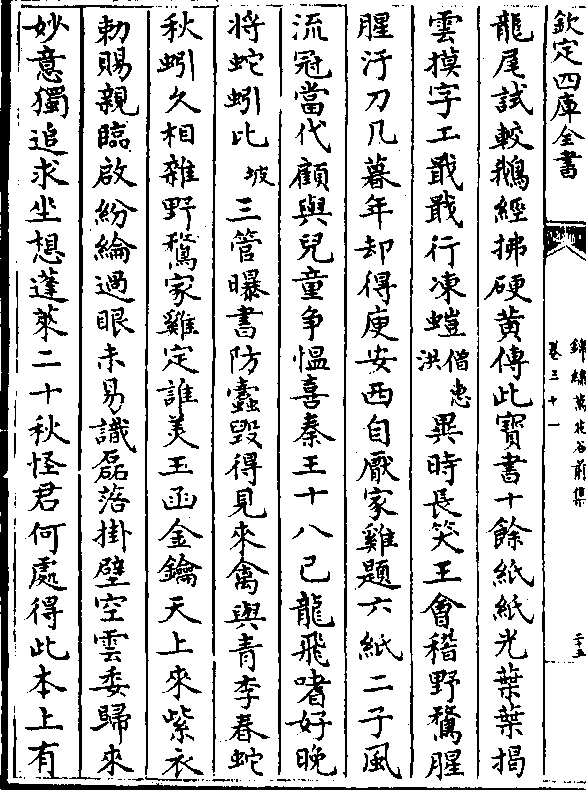 欽定四庫全書
錦繡萬花谷前集
卷三十一
三十五
龍尾試較鵝經拂硬黃傳此寶書十餘紙紙光葉葉揭
雲摸字工戢戢行凍螘僧惠洪異時長笑王㑹稽野鶩腥
腥汙刀几暮年却得庾安西自厭家雞題六紙二子風
流冠當代顧與兒童争愠喜秦王十八已龍飛嗜好晚
將蛇蚓比坡三管曝書防蠧毀得見來禽與青李春蛇
秋蚓久相雜野鶩家雞定誰美玉函金鑰天上來紫衣
勅賜親臨啟紛綸過眼未易識磊落掛壁空雲委歸來
妙意獨追求坐想蓬萊二十秋怪君何處得此本上有